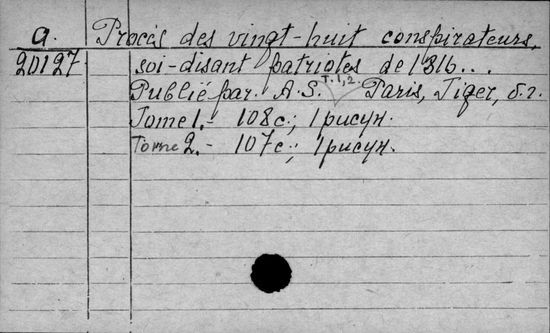 a. Procès des vingt-huit conspirateurs,
20127 soi-disant patriotes de 1816...
T. 1, 2.
Publié par. A. S. Paris, Tiger, б. г.
Tome 1. - 108 с.; 1 рисун.
Tome 2. - 107 с.; 1 рисун.